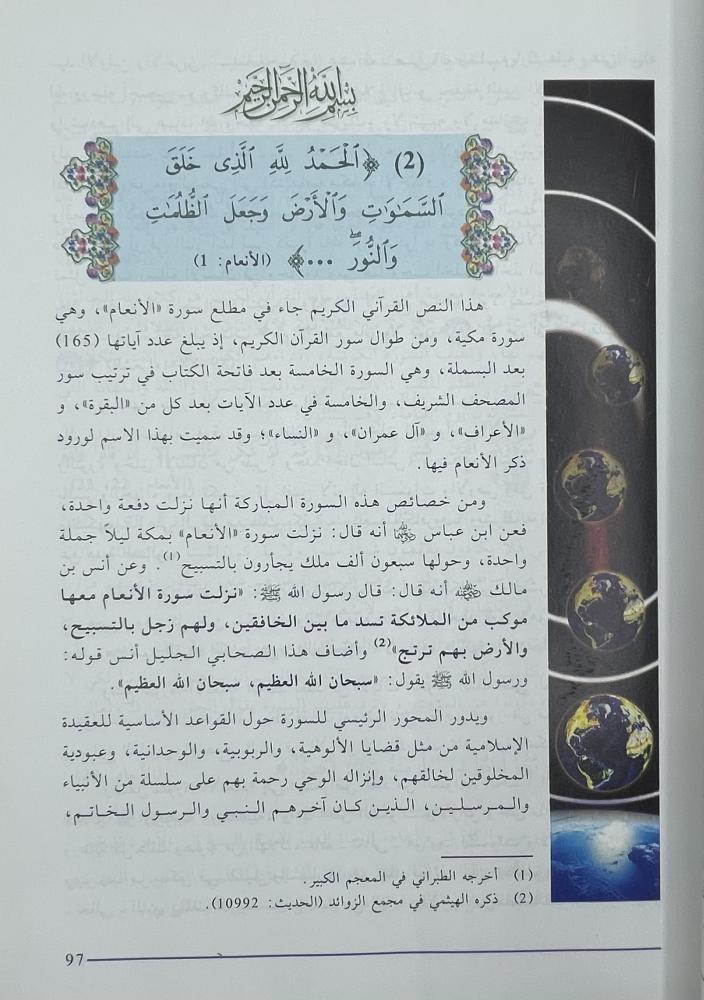 بسم الله الرحمن الرحيم
(2) ﴿ٱلْحَمْدُ لِلَّهِ ٱلَّذِى خَلَقَ
ٱلسَّمَٰوَٰتِ وَٱلْأَرْضَ وَجَعَلَ ٱلظُّلُمَٰتِ
وَٱلنُّورَ ۖ ...﴾ (الأنعام: 1)
هذا النص القرآني الكريم جاء في مطلع سورة «الأنعام»، وهي
سورة مكية، ومن طوال سور القرآن الكريم، إذ يبلغ عدد آياتها (165)
بعد البسملة، وهي السورة الخامسة بعد فاتحة الكتاب في ترتيب سور
المصحف الشريف، والخامسة في عدد الآيات بعد كل من «البقرة»، و
«الأعراف»، و «آل عمران»، و «النساء»؛ وقد سميت بهذا الاسم لورود
ذكر الأنعام فيها.
ومن خصائص هذه السورة المباركة أنها نزلت دفعة واحدة،
فعن ابن عباس رضي الله عنهما أنه قال: نزلت سورة «الأنعام» بمكة ليلاً جملة
واحدة، وحولها سبعون ألف ملك يجأرون بالتسبيح(1). وعن أنس بن
مالك رضي الله عنه أنه قال: قال رسول الله ﷺ: «نزلت سورة الأنعام معها
موكب من الملائكة تسد ما بين الخافقين، ولهم زجل بالتسبيح،
والأرض بهم ترتج»(2) وأضاف هذا الصحابي الجليل أنس قوله:
ورسول الله ﷺ يقول: «سبحان الله العظيم، سبحان الله العظيم».
ويدور المحور الرئيسي للسورة حول القواعد الأساسية للعقيدة
الإسلامية من مثل قضايا الألوهية، والربوبية، والوحدانية، وعبودية
المخلوقين لخالقهم، وإنزاله الوحي رحمة بهم على سلسلة من الأنبياء
والمرسلين، الذين كان آخرهم النبي والرسول الخاتم،
(1) أخرجه الطبراني في المعجم الكبير.
(2) ذكره الهيثمي في مجمع الزوائد (الحديث: 10992).
97